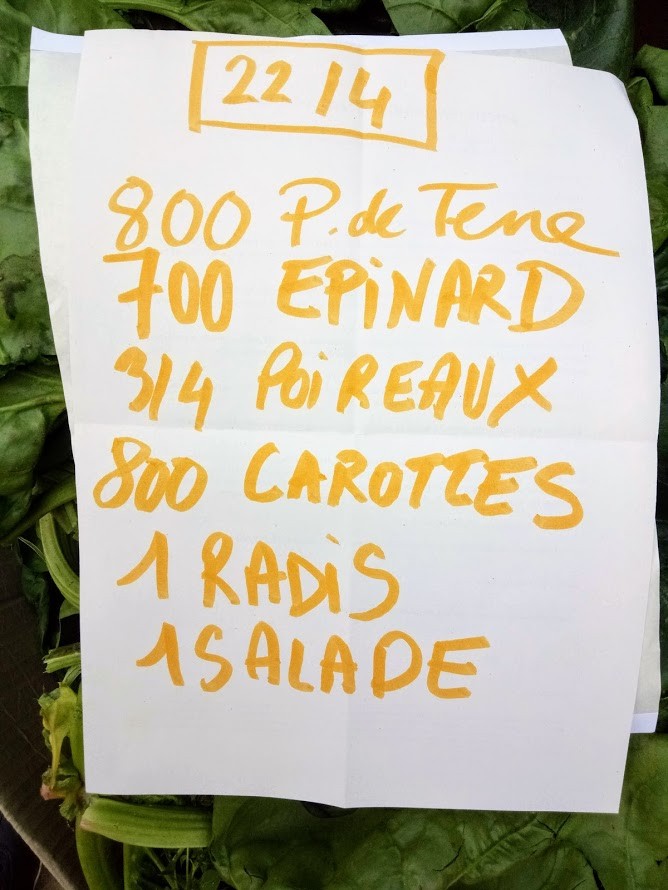 22/4
800 P. de Terre
700 EPiNARD
3/4 POiREAUX
800 CAROTTES
1 RADiS
1 SALADE